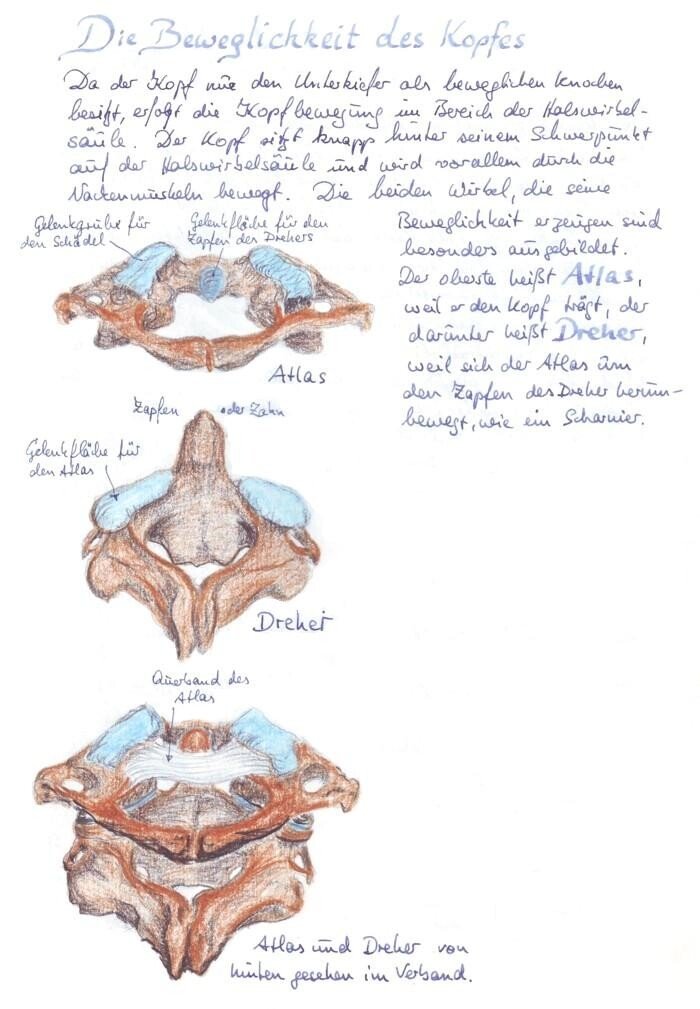 Die Beweglichkeit des Kopfes
Da der Kopf nur den Unterkiefer als beweglichen Knochen
besitzt, erfolgt die Kopfbewegung im Bereich der Halswirbel-
säule. Der Kopf sitzt knapp hinter seinem Schwerpunkt
auf der Halswirbelsäule und wird vorallem durch die
Nackenmuskeln bewegt. Die beiden Wirbel, die seine
Beweglichkeit erzeugen sind
besonders ausgebildet.
Der oberste heißt Atlas,
weil er den Kopf trägt, der
darunter heißt Dreher,
weil sich der Atlas um
den Zapfen des Dreher herum-
bewegt, wie ein Scharnier.
Gelenkgrube für
den Schädel
Gelenkfläche für den
Zapfen des Drehers
Atlas
Zapfen oder Zahn
Gelenkfläche für
den Atlas
Dreher
Querband des
Atlas
Atlas und Dreher von
hinten gesehen im Verband.